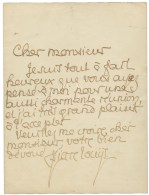 Cher monsieur
Je suis tout à fait
heureux que vous ayez
pensé à moi pour une si
aussi charmante réunion,
et j'ai un grand plaisir
à l'accepter
Veuillez me croire, cher
monsieur votre bien
dévoué